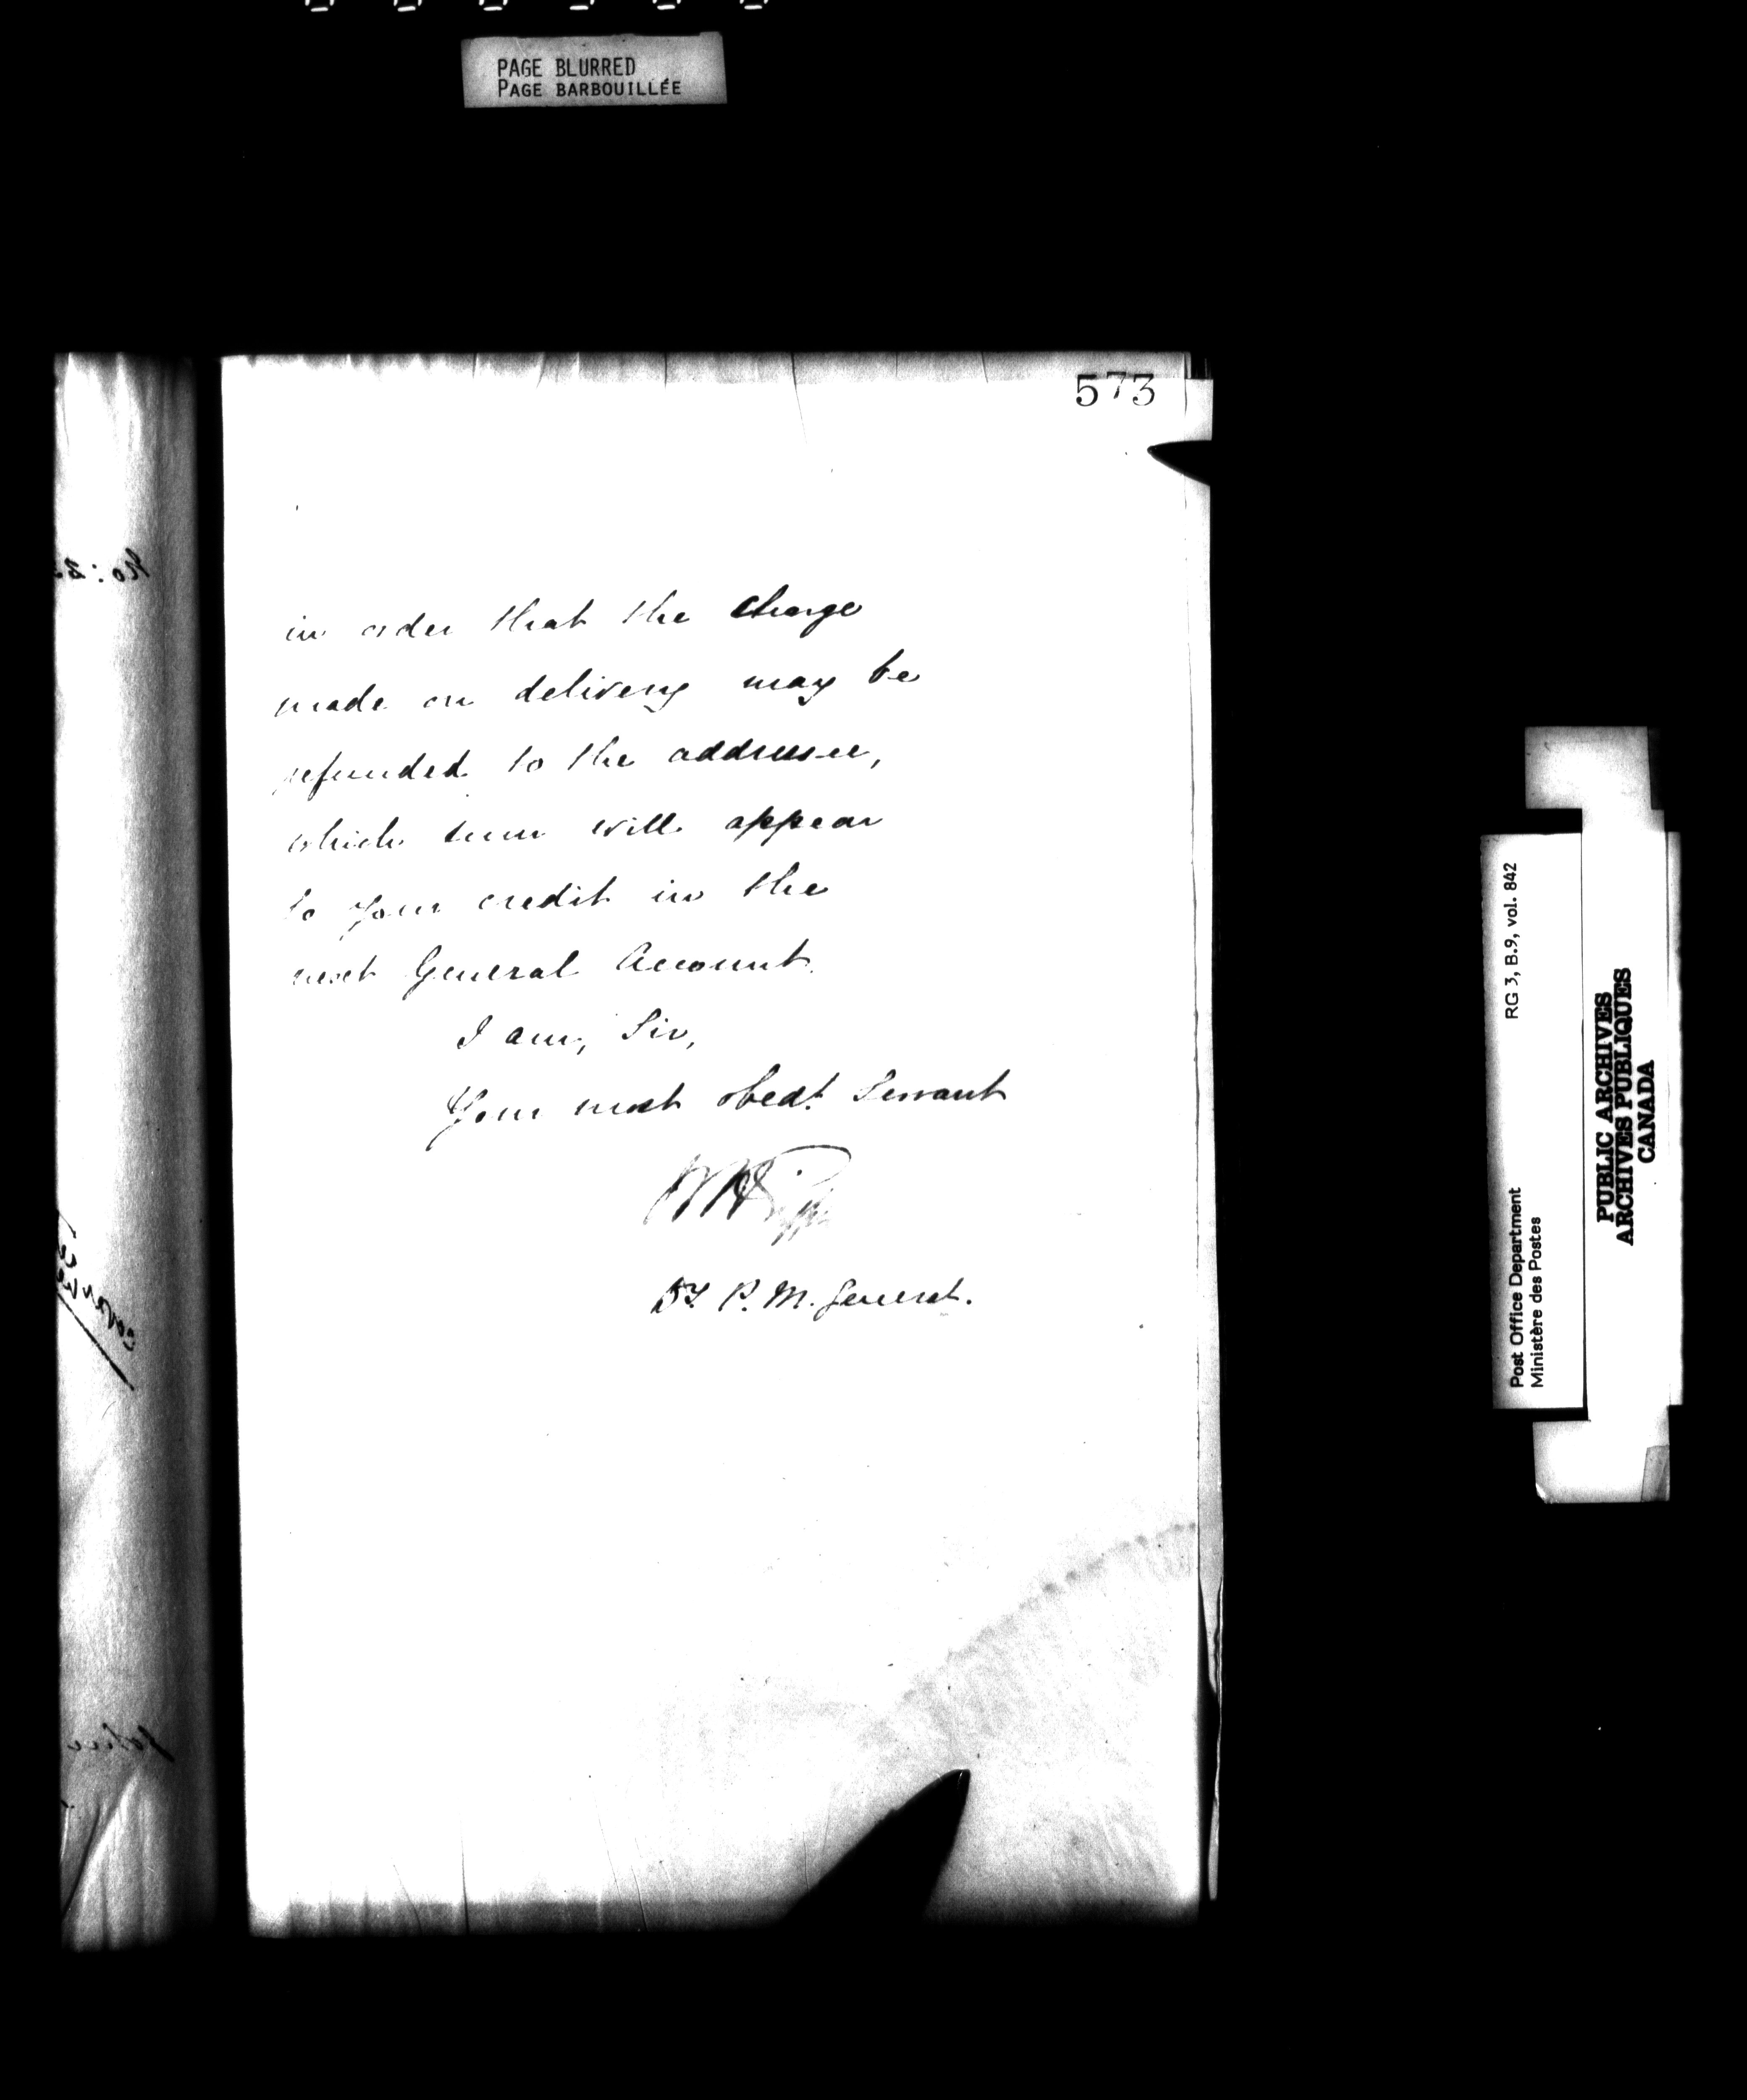 PAGE BLURRED
PAGE BARBOUILLÉE
573
in order that the Charge
made on delivery may be
refunded to the addressee,
which sum will appear
to your credit in the
next General Account.
I am, Sir,
Your most obedt. Servant
Dy. P. M. General.
RG 3, B.9, vol. 842
Post Office Department
Ministère des Postes
PUBLIC ARCHIVES
ARCHIVES PUBLIQUES
CANADA